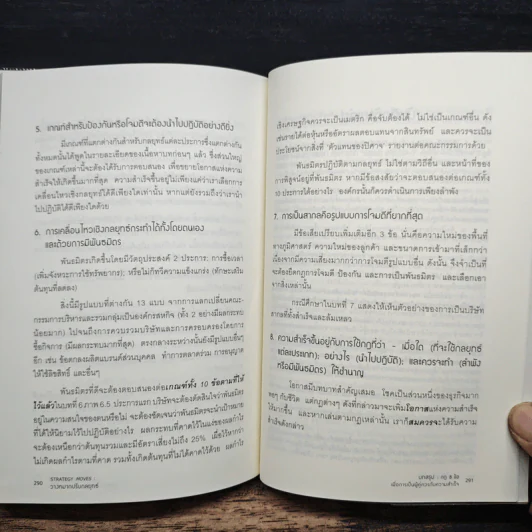 5. เกณฑ์สำหรับป้องกันหรือโจมตีจะต้องนำไปปฏิบัติอย่างดียิ่ง
มีเกณฑ์ที่แตกต่างกันสำหรับกลยุทธ์แต่ละประการซึ่งแตกต่างกัน
ทั้งหมดนั้นได้พูดในรายละเอียดของเนื้อหาบทก่อนๆ แล้ว ซึ่งส่วนใหญ่
ของเกณฑ์เหล่านี้จะต้องได้รับการตอบสนอง เพื่อขยายโอกาสแห่งความ
สำเร็จให้เกิดขึ้นมากที่สุด ความสำเร็จขึ้นอยู่ไม่เพียงแค่ว่าเราเลือกการ
เคลื่อนไหวเชิงกลยุทธ์ได้ดีเพียงใดเท่านั้น หากแต่ยังรวมถึงว่าเรานำ
ไปปฏิบัติได้ดีเพียงใดด้วย
6. การเคลื่อนไหวเชิงกลยุทธ์กระทำได้ทั้งโดยตนเอง
และด้วยการมีพันธมิตร
พันธมิตรเกิดขึ้นโดยมีวัตถุประสงค์ 2 ประการ: การซื้อเวลา
(เพิ่มจังหวะการใช้ทรัพยากร); หรือไม่ก็ทวีความแข็งแกร่ง (ทักษะเสริม
ต้นทุนที่ลดลง)
สิ่งนี้มีรูปแบบที่ต่างกัน 13 แบบ จากการแลกเปลี่ยนคณะ-
กรรมการบริหารและรวมกลุ่มเป็นองค์กรสหกิจ (ทั้ง 2 อย่างมีผลกระทบ
น้อยมาก) ไปจนถึงการควบรวมบริษัทและการครอบครองโดยการ
ซื้อกิจการ (มีผลกระทบมากที่สุด) ตรงกลางระหว่างนั้นยังมีรูปแบบอื่นๆ
อีก เช่น ข้อตกลงผลิตแบรนด์ส่วนบุคคล ทำการตลาดร่วม การอนุญาต
ให้ใช้ลิขสิทธิ์ และอื่นๆ
พันธมิตรที่ดีจะต้องตอบสนองต่อเกณฑ์ทั้ง 10 ข้อตามที่ให้
ไว้แล้วในบทที่ 6 ภาพ 6.5 ประการแรก บริษัทจะต้องตัดสินใจว่าพันธมิตร
อยู่ในความสนใจของตนหรือไม่ จะต้องชัดเจนว่าพันธมิตรจะนำเป้าหมาย
ที่ได้ให้นิยามไว้ไปปฏิบัติอย่างไร ผลกระทบที่คาดไว้ในแง่ของผลกำไร
จะต้องเหนือกว่าต้นทุนรวมและมีอัตราเสี่ยงไม่ถึง 25% เมื่อไร้หากว่า
ไม่เกิดผลกำไรตามที่คาด รวมทั้งเกิดต้นทุนที่ไม่ได้คาดไว้ด้วย ผลกำไร
290 STRATEGY MOVES
เชิงเศรษฐกิจควรจะเป็นเมตริก คือจับต้องได้ ไม่ใช่เป็นเกณฑ์อื่น ดัง
เช่นรายได้ต่อหุ้นหรืออัตราผลตอบแทนจากสินทรัพย์ และควรจะเป็น
ประโยชน์จากสิ่งที่ 'ตัวแทนของปีศาจ' รายงานต่อคณะกรรมการด้วย
พันธมิตรปฏิบัติตามกลยุทธ์ ไม่ใช่ตามวิธีอื่น และหน้าที่ของ
การพิสูจน์อยู่ที่พันธมิตร หากมีข้อสงสัยว่าจะตอบสนองต่อเกณฑ์ทั้ง
10 ประการได้อย่างไร องค์กรนั้นก็ควรดำเนินการเพียงลำพัง
7. การเป็นสากลคือรูปแบบการโจมตีที่ยากที่สุด
มีข้อเสียเปรียบเพิ่มเติมอีก 3 ข้อ นั่นคือความใหม่ของพื้นที่
ทางภูมิศาสตร์ ความใหม่ของลูกค้า และขนาดการเข้ามาที่เล็กกว่า
เนื่องจากมีความเสี่ยงมากกว่าการโจมตีรูปแบบอื่น ดังนั้น จึงจำเป็นที่
จะต้องยึดกฎการโจมตี ป้องกัน และการเป็นพันธมิตร และเลือกเอา
จากสิ่งเหล่านั้น
กรณีศึกษาในบทที่ 7 แสดงให้เห็นตัวอย่างของการเป็นบริษัท
สากลที่ทั้งสำเร็จและล้มเหลว
8. ความสำเร็จขึ้นอยู่กับการใช้กฎที่ว่า - เมื่อใด (ที่จะใช้กลยุทธ์
แต่ละประเภท); อย่างไร (นำไปปฏิบัติ); และควรจะทำ (ลำพัง
หรือมีพันธมิตร) ให้ชำนาญ
โอกาสมีบทบาทสำคัญเสมอ โชคเป็นส่วนหนึ่งของธุรกิจมาก
พอๆ กับชีวิต แต่กฎต่างๆ ดังที่กล่าวมาจะเพิ่มโอกาสแห่งความสำเร็จ
ให้มากขึ้น และหากเล่นตามกฎเหล่านั้น เราก็สมควรจะได้รับความ
สำเร็จดังกล่าว
บทสรุป : กฎ 8 ข้อ 291